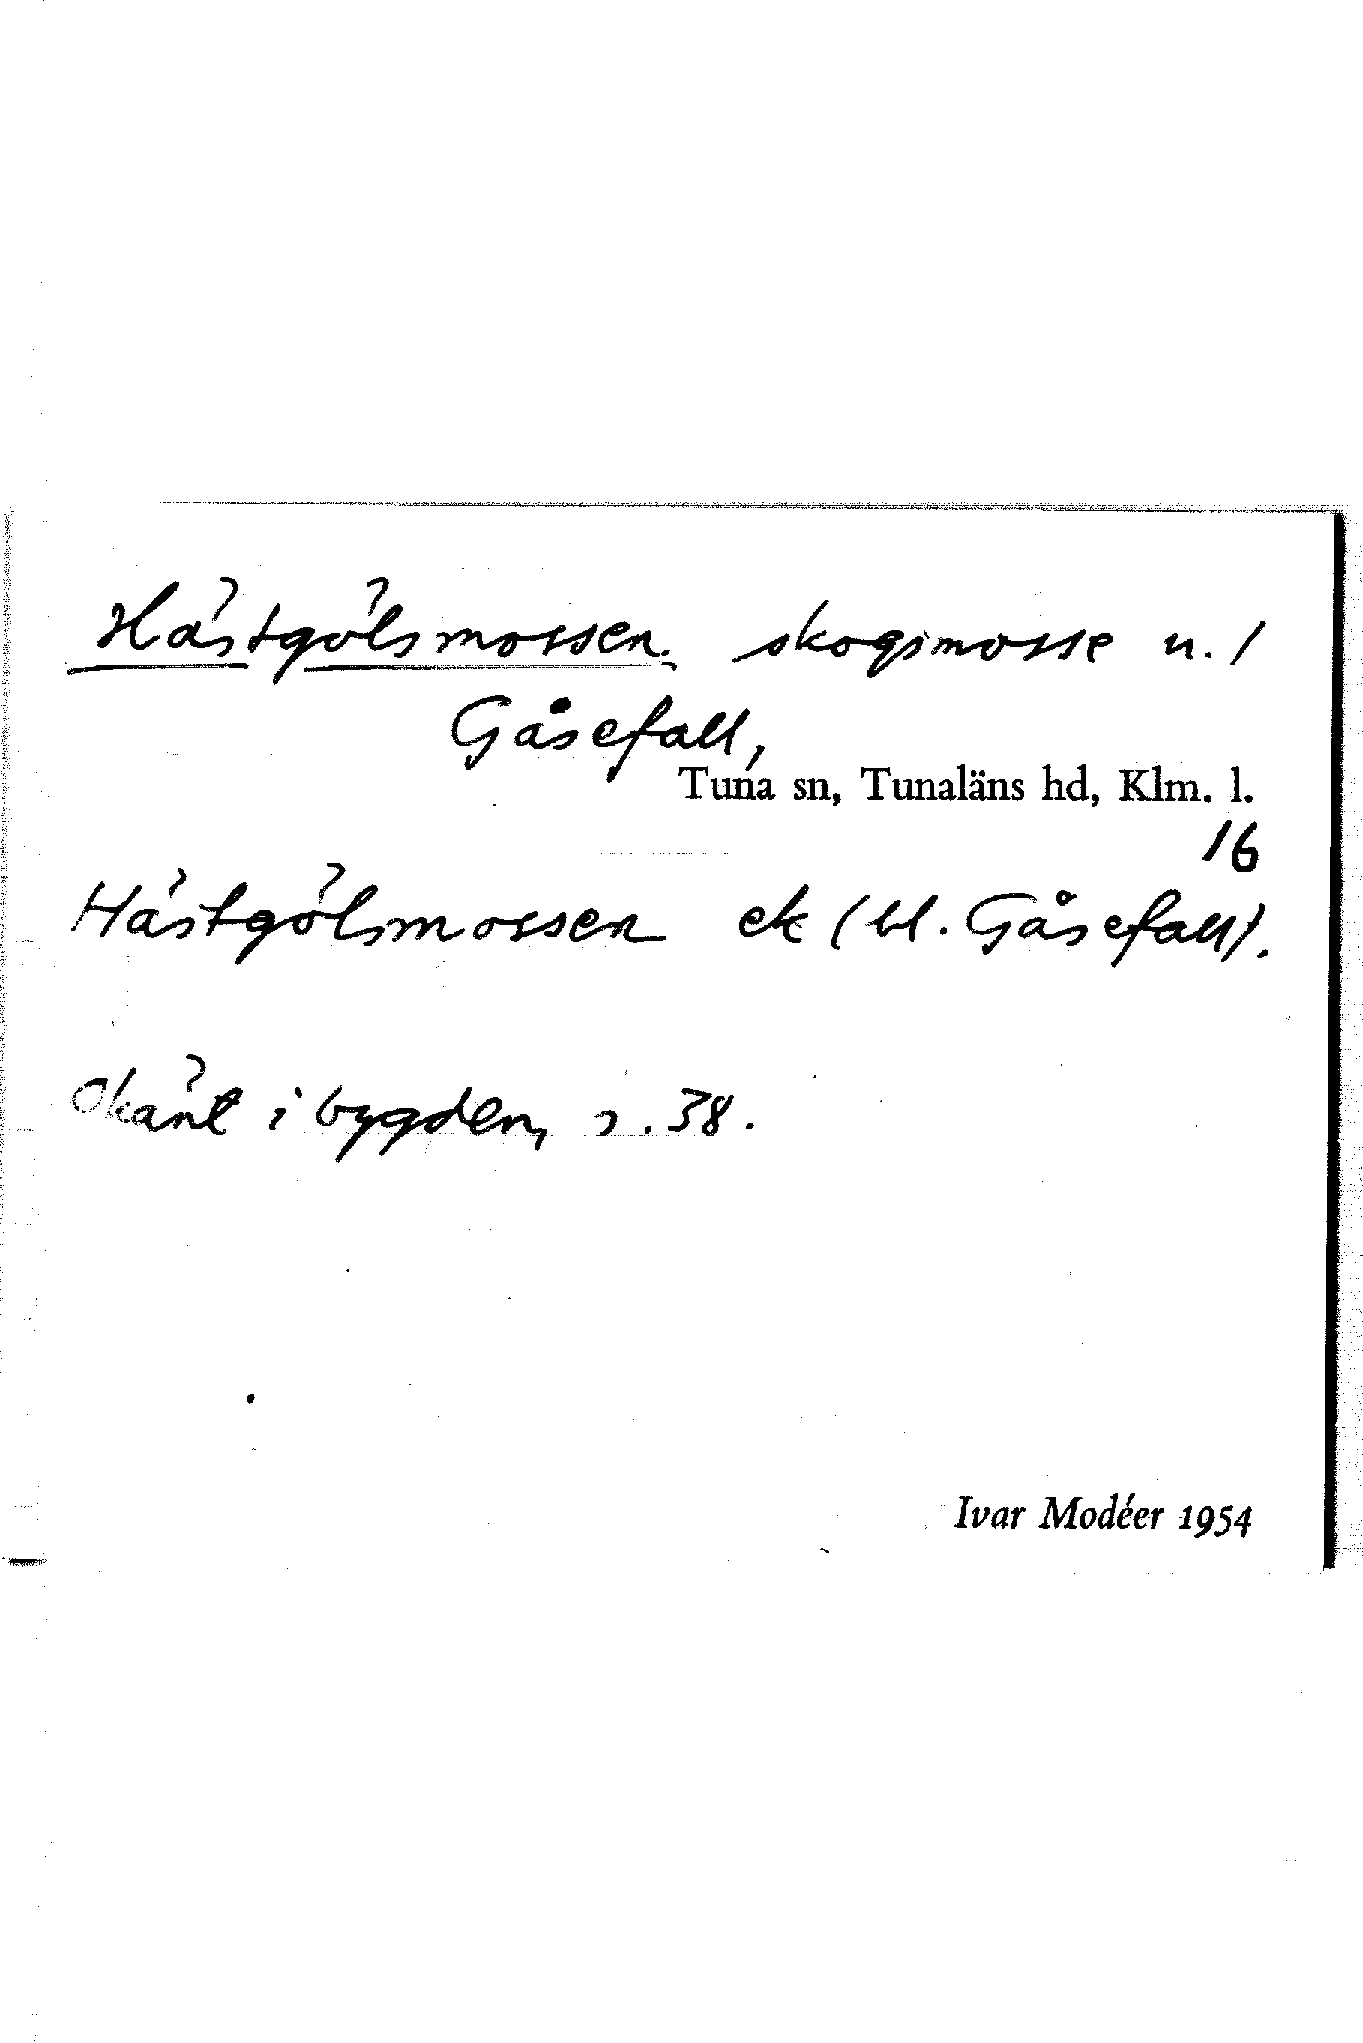 Hästgölsmossen. skogsmosse n. 1
Gåsefall,
Tuna sn, Tunaläns hd, Klm. l.
16
Hästgölsmossen ek (bl. Gåsefall).
Okänt i bygden, s. 38.
Ivar Modéer 1954